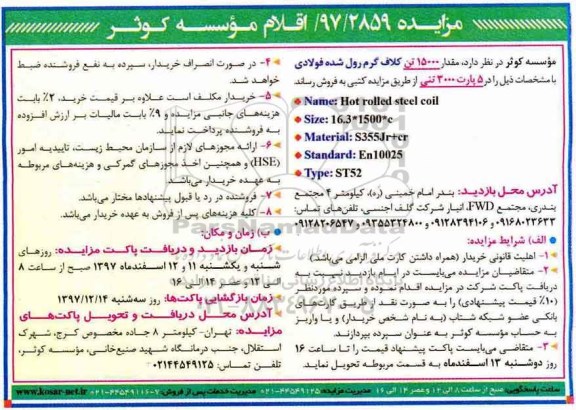 مزایده ۹۷/۲۸۵۹/ اقلام مؤسسه کوثر
مؤسسه کوثر در نظر دارد، مقدار ۱۵۰۰۰ تن کلاف گرم رول شده فولادی
با مشخصات ذیل را در ۵ پارت ۳۰۰۰ تنی از طریق مزایده کتبی به فروش رساند.
Name: Hot rolled steel coil
Size: 16.3*1500*c
Material: S355Jr+cr
Standard: En10025
Type: ST52
آدرس محل بازدید: بندر امام خمینی (ره)، کیلومتر ۴ مجتمع
بندری، مجتمع FWD، انبار شرکت گلف اجنسی، تلفن‌های تماس:
۰۹۱۶۸۰۲۳۶۳۳ و ۰۹۱۲۸۳۹۴۱۰۶ و ۰۹۳۵۵۳۲۴۸۰۰ و ۰۹۱۲۸۲۰۶۵۴۷
الف) شرایط مزایده:
۱- اهلیت قانونی خریدار (همراه داشتن کارت ملی الزامی می‌باشد)
۲- متقاضیان مزایده می‌بایست در ایام بازدید نسبت به
دریافت پاکت شرکت در مزایده اقدام نموده و سپرده موردنظر
(۱۰٪ قیمت پیشنهادی) را به صورت نقد از طریق کارت‌های
بانکی عضو شبکه شتاب (به نام شخص خریدار) و یا واریز
به حساب مؤسسه کوثر به عنوان سپرده بپردازند.
۳- متقاضی می‌بایست پاکت پیشنهاد قیمت را تا ساعت ۱۶
روز دوشنبه ۱۳ اسفندماه به مؤسسه کوثر تحویل نماید.
۴- در صورت انصراف خریدار، سپرده به نفع فروشنده ضبط
خواهد شد.
۵- خریدار مکلف است علاوه بر قیمت خرید، ۲٪ بابت
هزینه‌های جانبی مزایده و ۹٪ بابت مالیات بر ارزش افزوده
به فروشنده پرداخت نمایند.
۶- ارائه مجوزهای لازم از سازمان محیط زیست، تاییدیه امور
(HSE) و همچنین اخذ مجوزهای گمرکی و هزینه‌های مربوطه
به عهده خریدار می‌باشد.
۷- فروشنده در رد یا قبول پیشنهادها مختار می‌باشد.
۸- کلیه هزینه‌های پس از فروش به عهده خریدار می‌باشد.
ب) زمان و مکان:
زمان بازدید و دریافت پاکت مزایده: روزهای
شنبه و یکشنبه ۱۱ و ۱۲ اسفندماه ۱۳۹۷ صبح از ساعت ۸
الی ۱۲ و عصر ۱۴ الی ۱۶
زمان بازگشایی پاکت‌ها: روز سه‌شنبه ۱۳۹۷/۱۲/۱۴
آدرس محل دریافت و تحویل پاکت‌های
مزایده: تهران- کیلومتر ۸ جاده مخصوص کرج، شهرک
استقلال، جنب درمانگاه شهید صنیع‌خانی، مؤسسه کوثر،
تلفن تماس: ۰۲۱۴۴۵۴۹۱۲۵
ساعت پاسخگویی: صبح از ساعت ۸ الی ۱۲ و عصر ۱۴ الی ۱۶ مدیریت مزایده: ۴۴۵۴۹۱۲۵-۰۲۱ مدیریت خدمات پس از فروش: ۷-۴۴۵۴۹۱۱۶-۰۲۱ www.kosar-net.ir
ParsNamadData